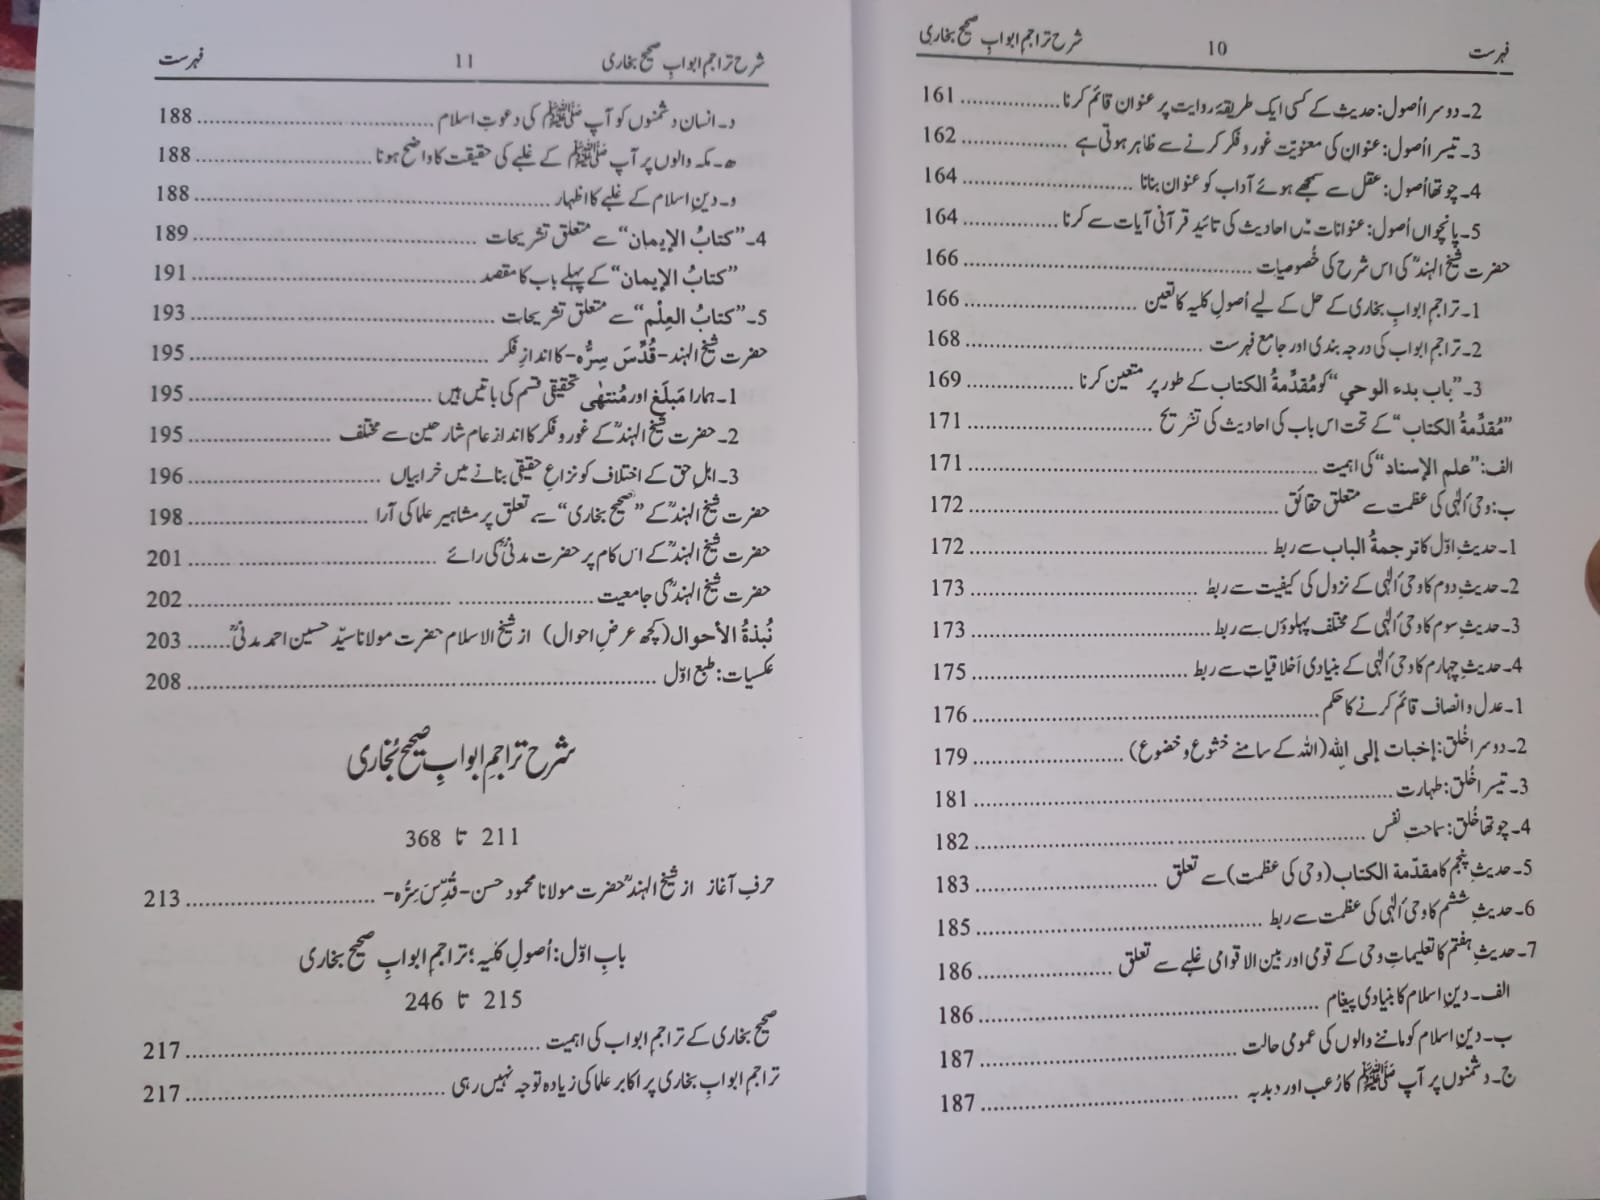 فہرست 10 شرح تراجم ابوابِ صحیح بخاری
2۔ دوسرا اُصول: حدیث کے کسی ایک طریقۂ روایت پر عنوان قائم کرنا .................. 161
3۔ تیسرا اُصول: عنوان کی معنویت غور و فکر کرنے سے ظاہر ہوتی ہے .................. 162
4۔ چوتھا اُصول: عقل سے سمجھے ہوئے آداب کو عنوان بنانا .................. 164
5۔ پانچواں اُصول: عنوانات میں احادیث کی تائید قرآنی آیات سے کرنا .................. 164
حضرت شیخ الہندؒ کی اس شرح کی خُصوصیات .................. 166
1۔ تراجم ابوابِ بخاری کے حل کے لیے اُصولِ کلیہ کا تعین .................. 166
2۔ تراجم ابواب کی درجہ بندی اور جامع فہرست .................. 168
3۔ ”باب بدء الوحي“ کو مُقدِّمةُ الكتاب کے طور پر متعین کرنا .................. 169
”مُقدِّمةُ الكتاب“ کے تحت اس باب کی احادیث کی تشریح .................. 171
الف: ”علم الإسناد“ کی اہمیت .................. 171
ب: وحیٔ الٰہی کی عظمت سے متعلق حقائق .................. 172
1۔ حدیثِ اوّل کا ترجمةُ الباب سے ربط .................. 172
2۔ حدیثِ دوم کا وحیٔ الٰہی کے نزول کی کیفیت سے ربط .................. 173
3۔ حدیثِ سوم کا وحیٔ الٰہی کے مختلف پہلوؤں سے ربط .................. 173
4۔ حدیثِ چہارم کا وحیٔ الٰہی کے بنیادی اَخلاقیات سے ربط .................. 175
1۔ عدل و انصاف قائم کرنے کا حکم .................. 176
2۔ دوسرا خُلق: إخبات إلى اللهِ (اللہ کے سامنے خشوع و خضوع) .................. 179
3۔ تیسرا خُلق: طہارت .................. 181
4۔ چوتھا خُلق: سماحتِ نفس .................. 182
5۔ حدیثِ پنجم کا مقدّمة الكتاب (وحی کی عظمت) سے تعلق .................. 183
6۔ حدیثِ ششم کا وحیٔ الٰہی کی عظمت سے ربط .................. 185
7۔ حدیثِ ہفتم کا تعلیماتِ وحی کے قومی اور بین الاقوامی غلبے سے تعلق .................. 186
الف۔ دینِ اسلام کا بنیادی پیغام .................. 186
ب۔ دینِ اسلام کو ماننے والوں کی عمومی حالت .................. 187
ج۔ دشمنوں پر آپ ﷺ کا رُعب اور دبدبہ .................. 187
شرح تراجم ابوابِ صحیح بخاری 11 فہرست
د۔ انسان دشمنوں کو آپ ﷺ کی دعوتِ اسلام .................. 188
ھ۔ مکہ والوں پر آپ ﷺ کے غلبے کی حقیقت کا واضح ہونا .................. 188
و۔ دینِ اسلام کے غلبے کا اظہار .................. 188
4۔ ”كتابُ الإيمان“ سے متعلق تشریحات .................. 189
”كتابُ الإيمان“ کے پہلے باب کا مقصد .................. 191
5۔ ”كتابُ العِلْم“ سے متعلق تشریحات .................. 193
حضرت شیخ الہند -قُدِّسَ سِرُّه- کا اندازِ فکر .................. 195
1۔ ہمارا مَبلَغ اور مُنتهٰى تحقیقی قسم کی باتیں ہیں .................. 195
2۔ حضرت شیخ الہندؒ کے غور و فکر کا انداز عام شارحین سے مختلف .................. 195
3۔ اہلِ حق کے اختلاف کو نزاعِ حقیقی بنانے میں خرابیاں .................. 196
حضرت شیخ الہندؒ کے ”صحیح بخاری“ سے تعلق پر مشاہیر علما کی آرا .................. 198
حضرت شیخ الہندؒ کے اس کام پر حضرت مدنیؒ کی رائے .................. 201
حضرت شیخ الہندؒ کی جامعیت .................. 202
نُبذةُ الأحوال (کچھ عرضِ احوال) از شیخ الاسلام حضرت مولانا سیّد حسین احمد مدنیؒ ....... 203
عکسیات: طبع اوّل .................. 208
شرح تراجمِ ابوابِ صحیح بُخاری
211 تا 368
حرفِ آغاز از شیخ الہندؒ حضرت مولانا محمود حسن -قُدِّسَ سِرُّه- .................. 213
بابِ اوّل: اُصولِ کلیہ؛ تراجمِ ابوابِ صحیح بخاری
215 تا 246
صحیح بخاری کے تراجمِ ابواب کی اہمیت .................. 217
تراجمِ ابوابِ بخاری پر اکابر علما کی زیادہ توجہ نہیں رہی .................. 217